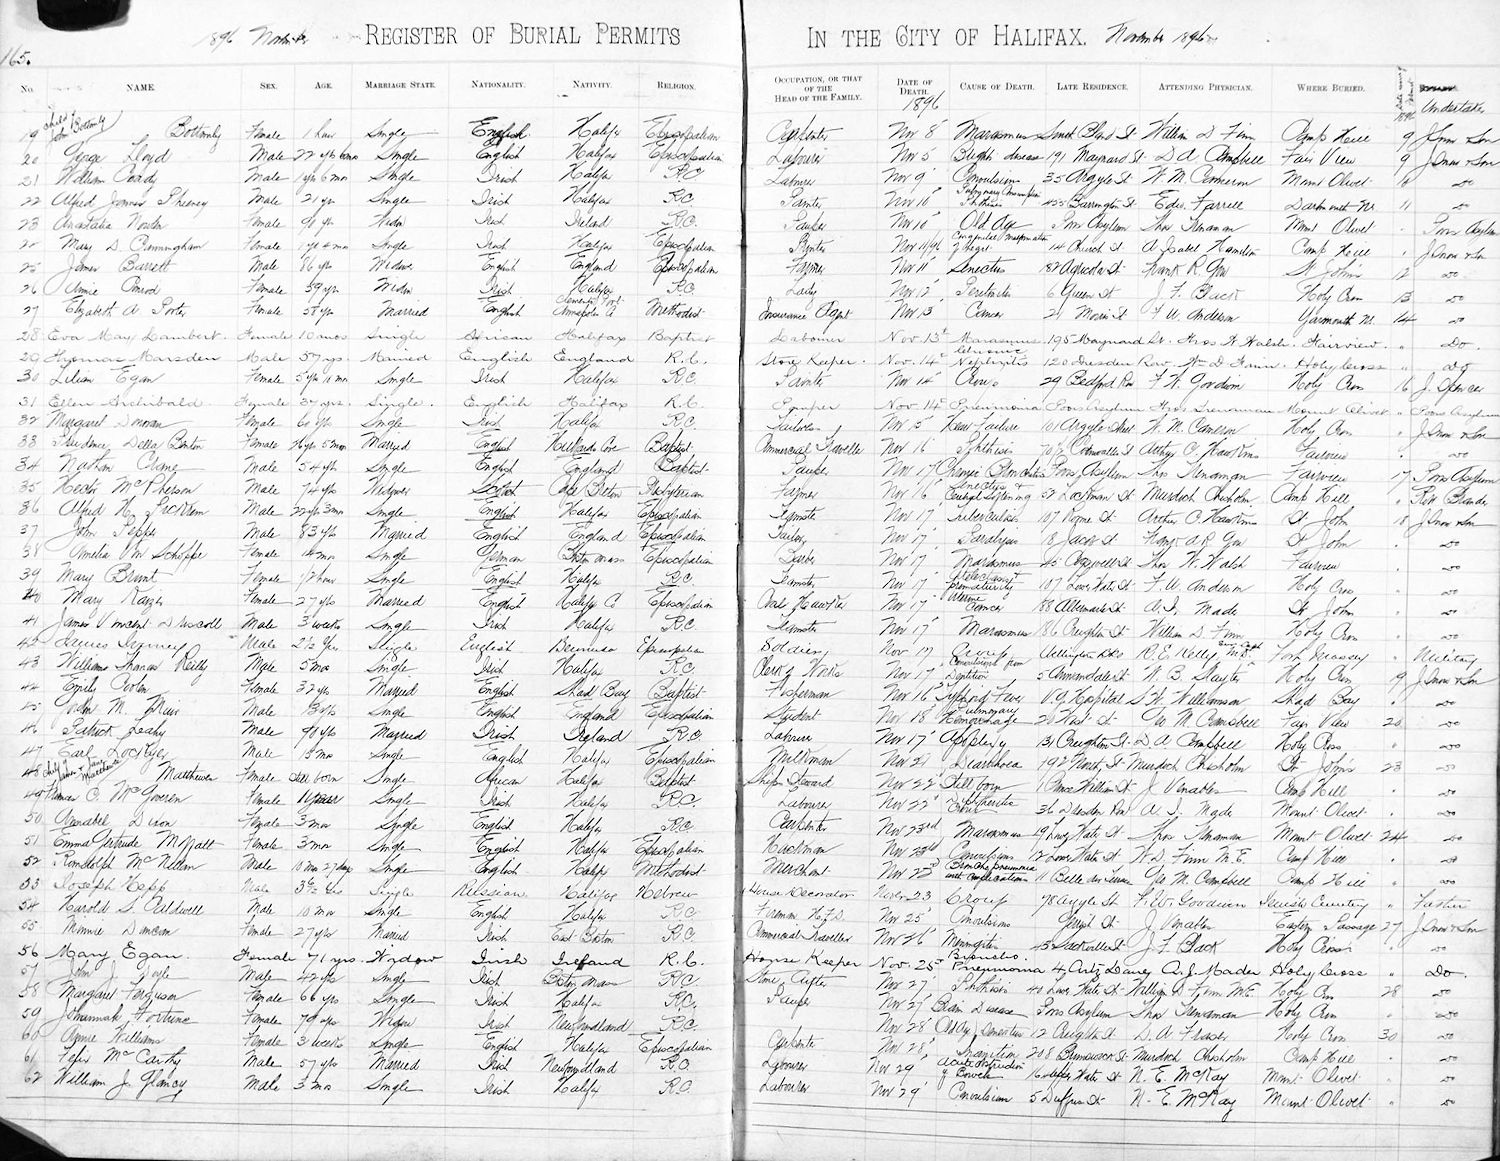 165.
1896 November REGISTER OF BURIAL PERMITS IN THE CITY OF HALIFAX. November 1896
No. NAME. SEX. AGE. MARRIAGE STATE. NATIONALITY. NATIVITY. RELIGION. OCCUPATION, OR THAT OF THE HEAD OF THE FAMILY. DATE OF DEATH. 1896 CAUSE OF DEATH. LATE RESIDENCE. ATTENDING PHYSICIAN. WHERE BURIED. 1896 Undertaker
19 child of John Bottomly Bottomly Female 1 hour Single English Halifax Episcopalian Carpenter Nov 8 Marasmus South Bland St William D Finn Camp Hill 9 J Snow & Son
20 George Lloyd Male 22 yrs Single English Halifax Episcopalian Labourer Nov 5 Brights disease 191 Maynard St D A Campbell Fair View 9 J Snow & Son
21 William Male 1 yr 6 mos Single Irish Halifax R C Labourer Nov 9 Convulsion 35 Argyle St W. M. Cameron Mount Olivet do
22 Alfred James Male 21 yrs Single Irish Halifax R.C. Painter Nov 10 Phthisis Barrington St Edw. Farrell Dartmouth 11 do
23 Anastatia Female 90 yrs Widow Irish Ireland R.C. Pauper Nov 10 Old Age Poors Asylum Thos Trenaman Mount Olivet Poors Asylum
Mary D Cunningham Female 1 yr 4 mos Single Irish Halifax Episcopalian Printer Nov 11/96 Congenital malformation of heart 14 Church St A Isabel Hamilton Camp Hill J Snow & Son
25 James Barrett Male 86 yrs Widower English England Episcopalian Farmer Nov 11 Senectus 182 Agricola St Frank R. Gow St John's 12 do
26 Annie Female 39 yrs Widow Irish Halifax R.C. Lady Nov 12 6 Queen St J F. Black Holy Cross 13 do
27 Elizabeth A Porter Female 58 yrs Married English Annapolis Co Methodist Insurance Agent Nov 13 Cancer 21 Morris St F W. Anderson Yarmouth 14 do
28 Eva May Lambert Female 10 mos Single African Halifax Baptist Labourer Nov 13th Marasmus 195 Maynard St. Thos W Walsh Fairview. Do.
29 Thomas Marsden Male 57 yrs. Married English England R.C. Store Keeper. Nov. 14th Nephritis 120 Dresden Row Wm D Finn. Holy Cross do
30 Lilian Egan Female 5 yrs 11 mos Single Irish Halifax R.C. Painter Nov 14 Croup 29 Bedford Row F. W. Goodwin Holy Cross 16 J. Spencer
31 Ellen Archibald Female 37 yrs. Single. English Halifax R.C. Pauper Nov. 14th Pneumonia Poors Asylum Thos Trenaman Mount Olivet Poors Asylum
32 Margaret Female 60 yrs Single Irish Halifax R.C. Nov 15 Heart Failure 101 Argyle Street W. M. Cameron Holy Cross J Snow & Son
33 Prudence Della Female Married English Hubbards Cove Baptist Commercial Traveller Nov 16 Phthisis Cornwallis St Arthur C. Hawkins Fairview do
34 Nathan Crane Male 54 yrs Single English England Baptist Pauper Nov 17 Chronic Bronchitis Poors Asylum Thos Trenaman Fairview 17 Poors Asylum
35 Hector McPherson Male 74 yrs Widower Scotch Cape Breton Presbyterian Farmer Nov 16 Senectus & Cerebral Softening 37 Lockman St Murdoch Chisholm Camp Hill
36 Alfred H. Male 22 yrs 3 mos Single English Halifax Episcopalian Teamster Nov 17 Tuberculosis 107 Rome St Arthur C. Hawkins St John 18 J Snow & Son
37 John Male 83 yrs Married English England Episcopalian Tailor Nov 17 Paralysis 18 Jacob St Frank A R Gow St John do
38 Amelia Female 14 mos Single German Boston Mass Episcopalian Barber Nov 17 Marasmus 45 Cogswell St Thos W. Walsh Fairview do
39 Mary Brunt Female 1/2 hour Single English Halifax R.C. Teamster Nov 17 Atelectasis prematurity 107 Lower Water St F. W. Anderson Holy Cross do
40 Mary Female 27 yrs Married English Halifax Co Episcopalian Nov 17 Uterine Cancer 88 Albemarle St A. I. Mader St John do
41 James Vincent Driscoll Male 3 weeks Single Irish Halifax R.C. Teamster Nov 17 Marasmus 186 Creighton St William D Finn Holy Cross do
42 Male 2½ yrs Single English Bermuda Episcopalian Soldier Nov 17 Croup Wellington Bks R. E. Kelly Fort Massey Military
43 William Thomas Reilly Male 5 mos Single Irish Halifax R.C. Clerk of Works Nov 17 Convulsions from Dentition 5 Annandale St W. B. Slayter Holy Cross J Snow & Son
44 Emily Female 32 yrs Married English Shad Bay Baptist Fisherman Nov 16 Typhoid Fever V. G. Hospital S W. Williamson Shad Bay do
45 Gordon M. Male Single English England Episcopalian Student Nov 18 Pulmonary Hemorrhage 21 West St Geo M. Campbell Fair View 20 do
46 Patrick Leahy Male 90 yrs Married Irish Ireland R.C. Labourer Nov 17 Apoplexy 131 Creighton St. D. A. Campbell Holy Cross do
47 Earl Lockyer Male Single English Halifax Episcopalian Milkman Nov 21 Diarrhoea 192 North St Murdoch Chisholm St John's 23 do
48 Matthews Female Still born Single African Halifax Baptist Ships Steward Nov 22 Still born 1 Prince William St J Venables Camp Hill do
49 McGovern Female 11 year Single Irish Halifax R.C. Labourer Nov 22 36 Dresden Row A. I. Mader Mount Olivet do
50 Annabel Dixon Female 3 mos Single English Halifax R.C. Carpenter Nov 23rd Marasmus 19 Lower Water St Thos Trenaman Mount Olivet 24 do
51 Emma Gertrude Moffatt Female 3 mos Single English Halifax Episcopalian Nov 23rd Convulsions Lower Water St W. D. Finn M.E. Camp Hill do
52 Randolph McMillan Male 10 mos 27 days Single English Halifax Methodist Merchant Nov 23 Broncho pneumonia with complications 11 Belle Air Terrace Geo M. Campbell Camp Hill do
53 Joseph Male 3½ Single Russian Halifax Hebrew House Decorator Nov 23 Croup 78 Argyle St F. W. Goodwin Jewish Cemetery
54 Harold S. Caldwell Male 10 mos Single English Halifax R.C. Fireman H.F.D. Nov 25 Convulsions J Venables Eastern Passage 27 J Snow & Son
55 Minnie Duncan Female 27 yrs Married Irish East Boston R.C. Commercial Traveller Nov 26 Meningitis 45 Sackville St J F. Black Holy Cross do
56 Mary Egan. Female 71 yrs. Widow Irish Ireland R.C. House Keeper Nov. 25th Broncho Pneumonia 4 Artz Laney A. I. Mader Holy Cross Do.
57 John J. Doyle Male 42 yrs Single Irish Boston Mass R.C. Stone Cutter Nov 27 Phthisis 40 Lower Water St William D Finn M.E. Holy Cross 28 do
58 Margaret Ferguson Female 66 yrs Single Irish Halifax R.C. Pauper Nov 27 Brain Disease Poors Asylum Thos Trenaman Holy Cross do
59 Johannah Fortune Female Widow Irish Newfoundland R.C. Nov 28 Old Age Senectus 12 Creighton St D. A. Fraser Holy Cross 30 do
60 Annie Williams Female 3 weeks Single English Halifax Episcopalian Carpenter Nov 28 Inanition 208 Brunswick St Murdoch Chisholm Camp Hill do
61 Felix McCarthy Male 57 yrs Married Irish Newfoundland R.C. Labourer Nov 29 Acute obstruction of Bowels Upper Water St N. E. McKay Mount Olivet do
62 William J. Glancy Male 3 mos Single Irish Halifax R.C. Labourer Nov 29 Convulsion 5 Duffus St N. E. McKay Mount Olivet do